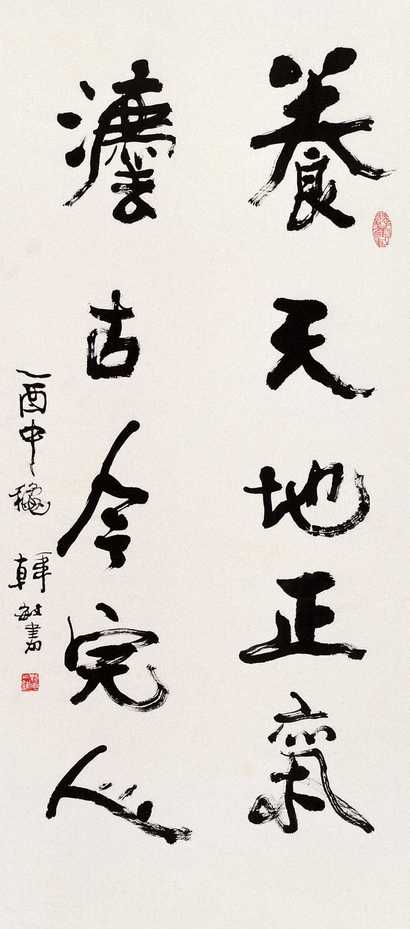 養天地正氣
灋古今完人
乙酉中龝
韓敏書